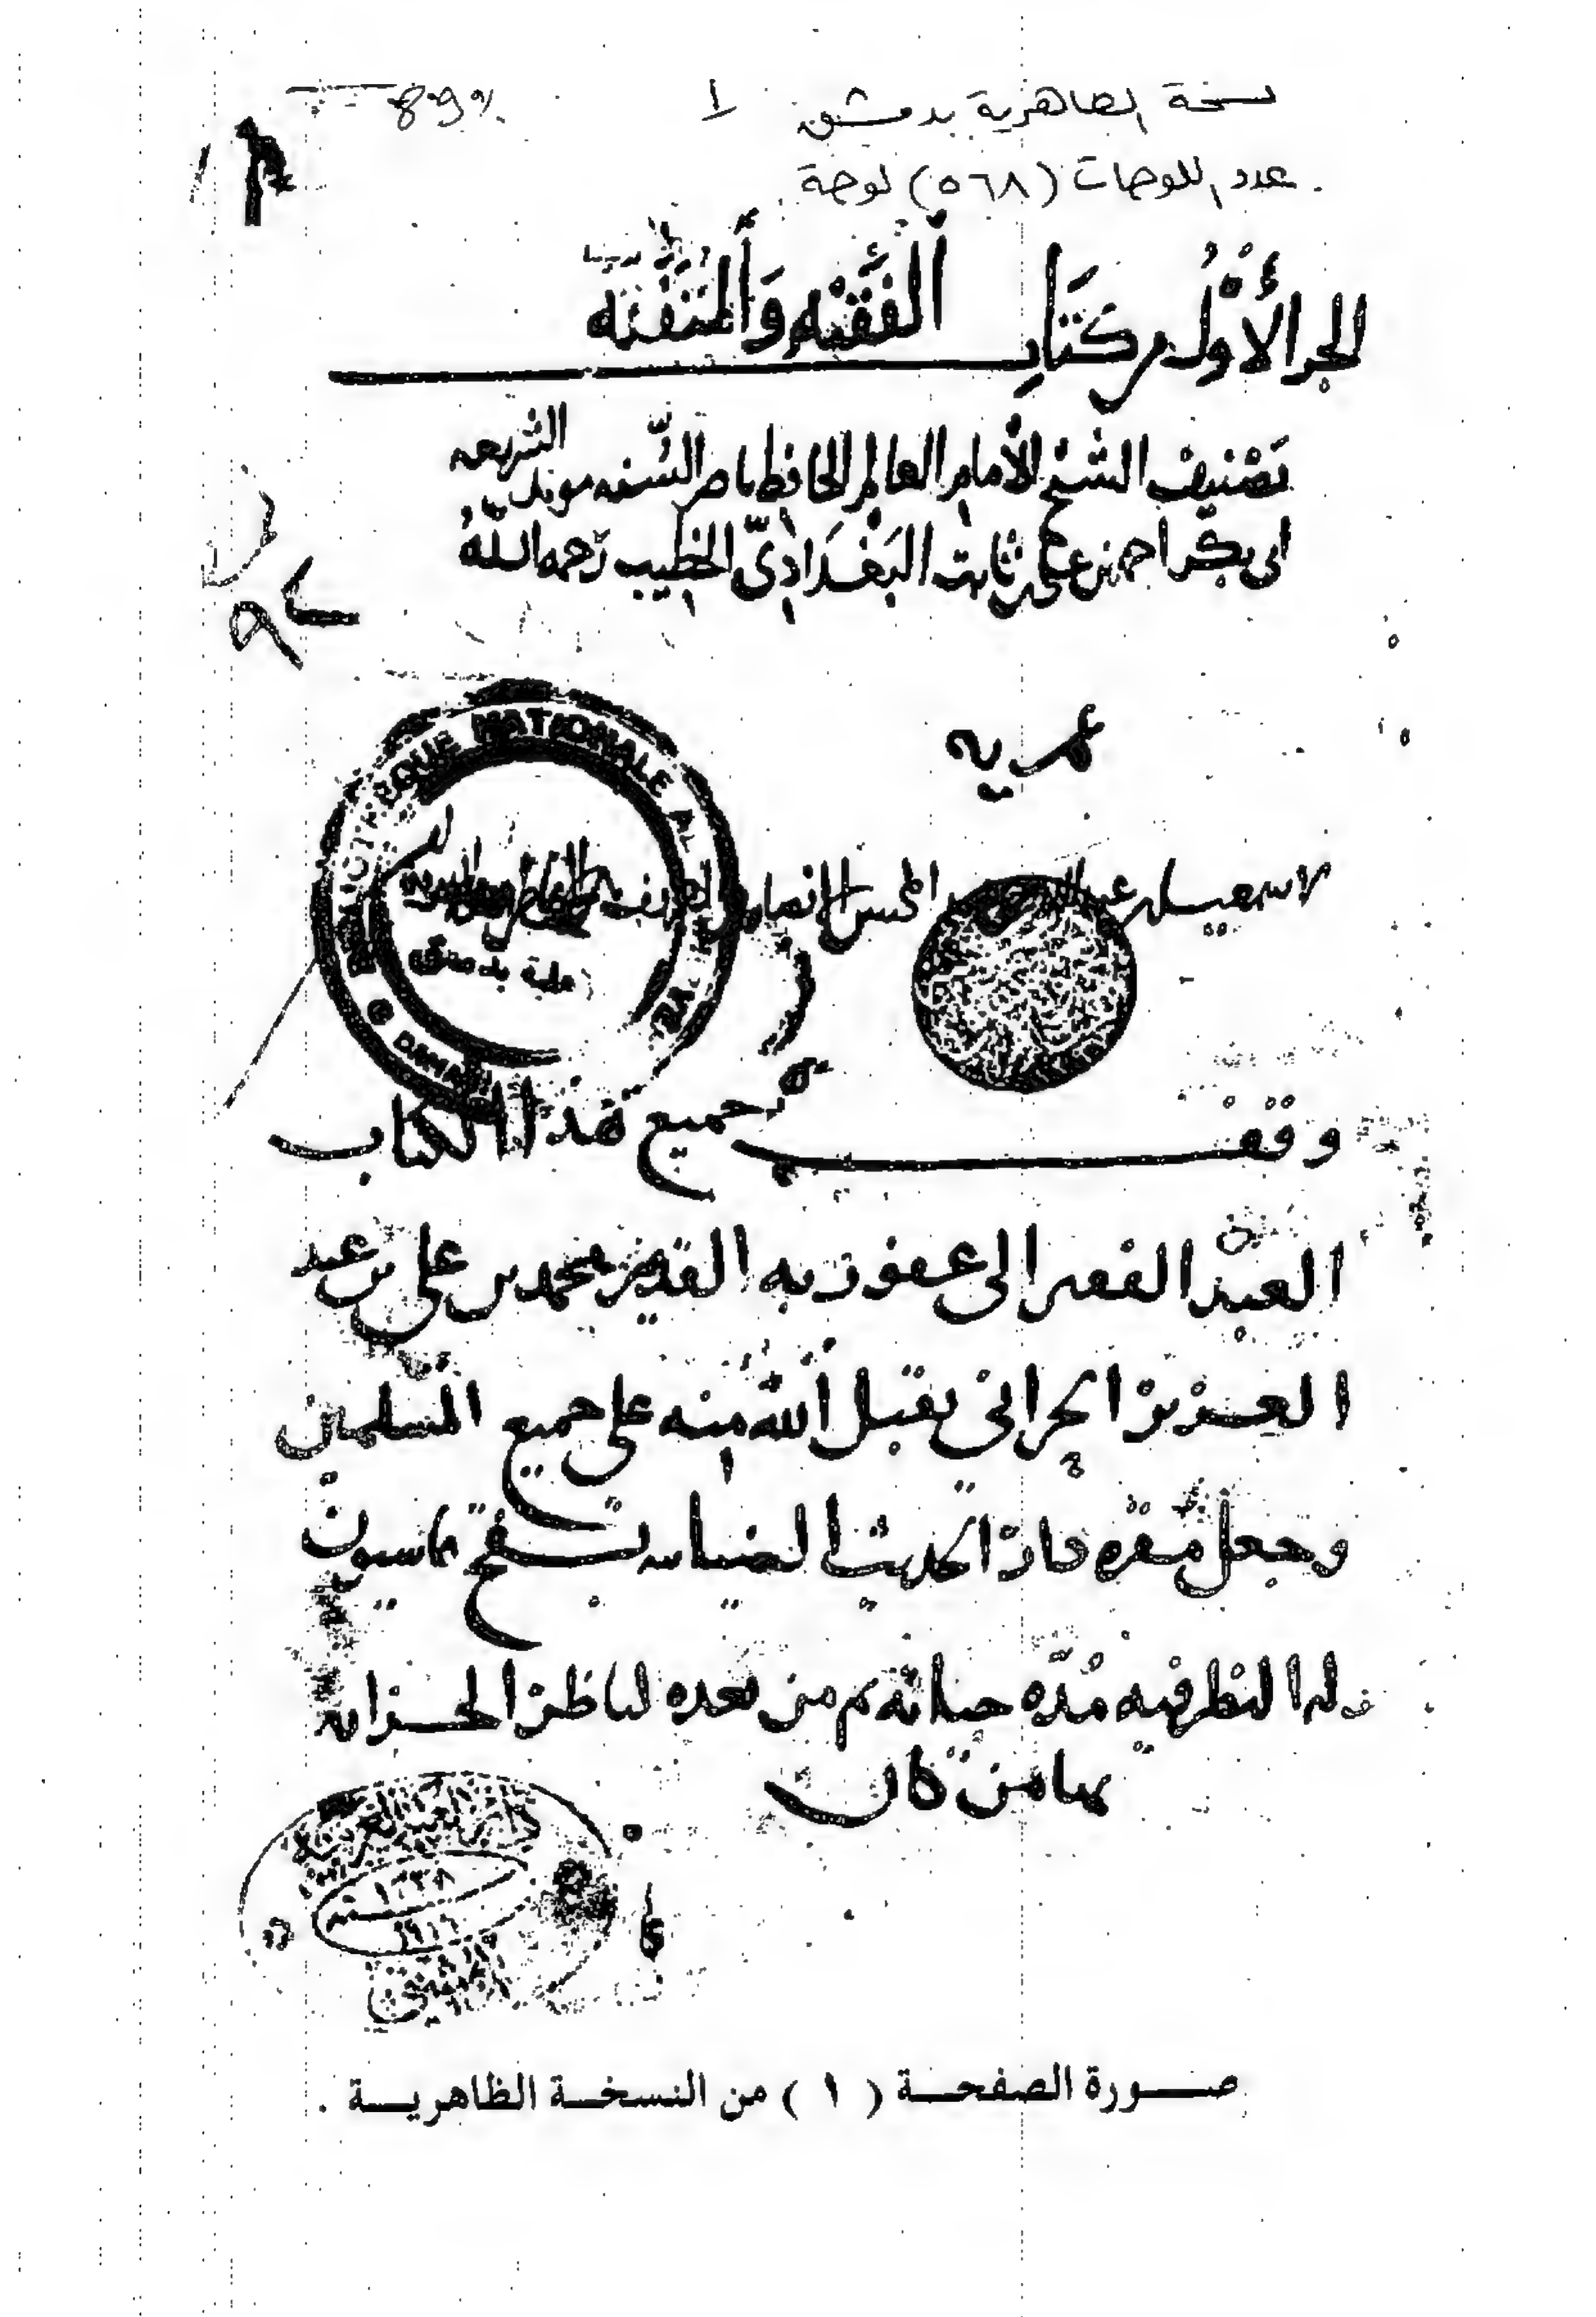 نسخة الظاهرية بدمشق ١
عدد اللوحات (٥٦٨) لوحة
الجز الأول من كتاب الفقيه والمتفقه
تصنيف الشيخ الأمام العالم الحافظ ناصر السنه مويد الشريعه
ابى بكر احمد بن على بن ثابت البغدادى الخطيب رحمه الله
عمريه
BIBLIOTHEQUE NATIONALE AL
لاسمعيل بن عبد المحسن الانصارى
DAMAS
وقف جميع هذا الكتاب
العبد الفقير الى عفو ربه القدير محمد بن على بن عبد
العزيز الحرانى تقبل الله منه على جميع المسلمين
وجعل مقره دار الحديث الضيائيه بسفح قاسيون
وله النظر فيه مده حياته ثم من بعده لناظر الخزانه
بها من كان
صورة الصفحة ( ١ ) من النسخة الظاهرية .